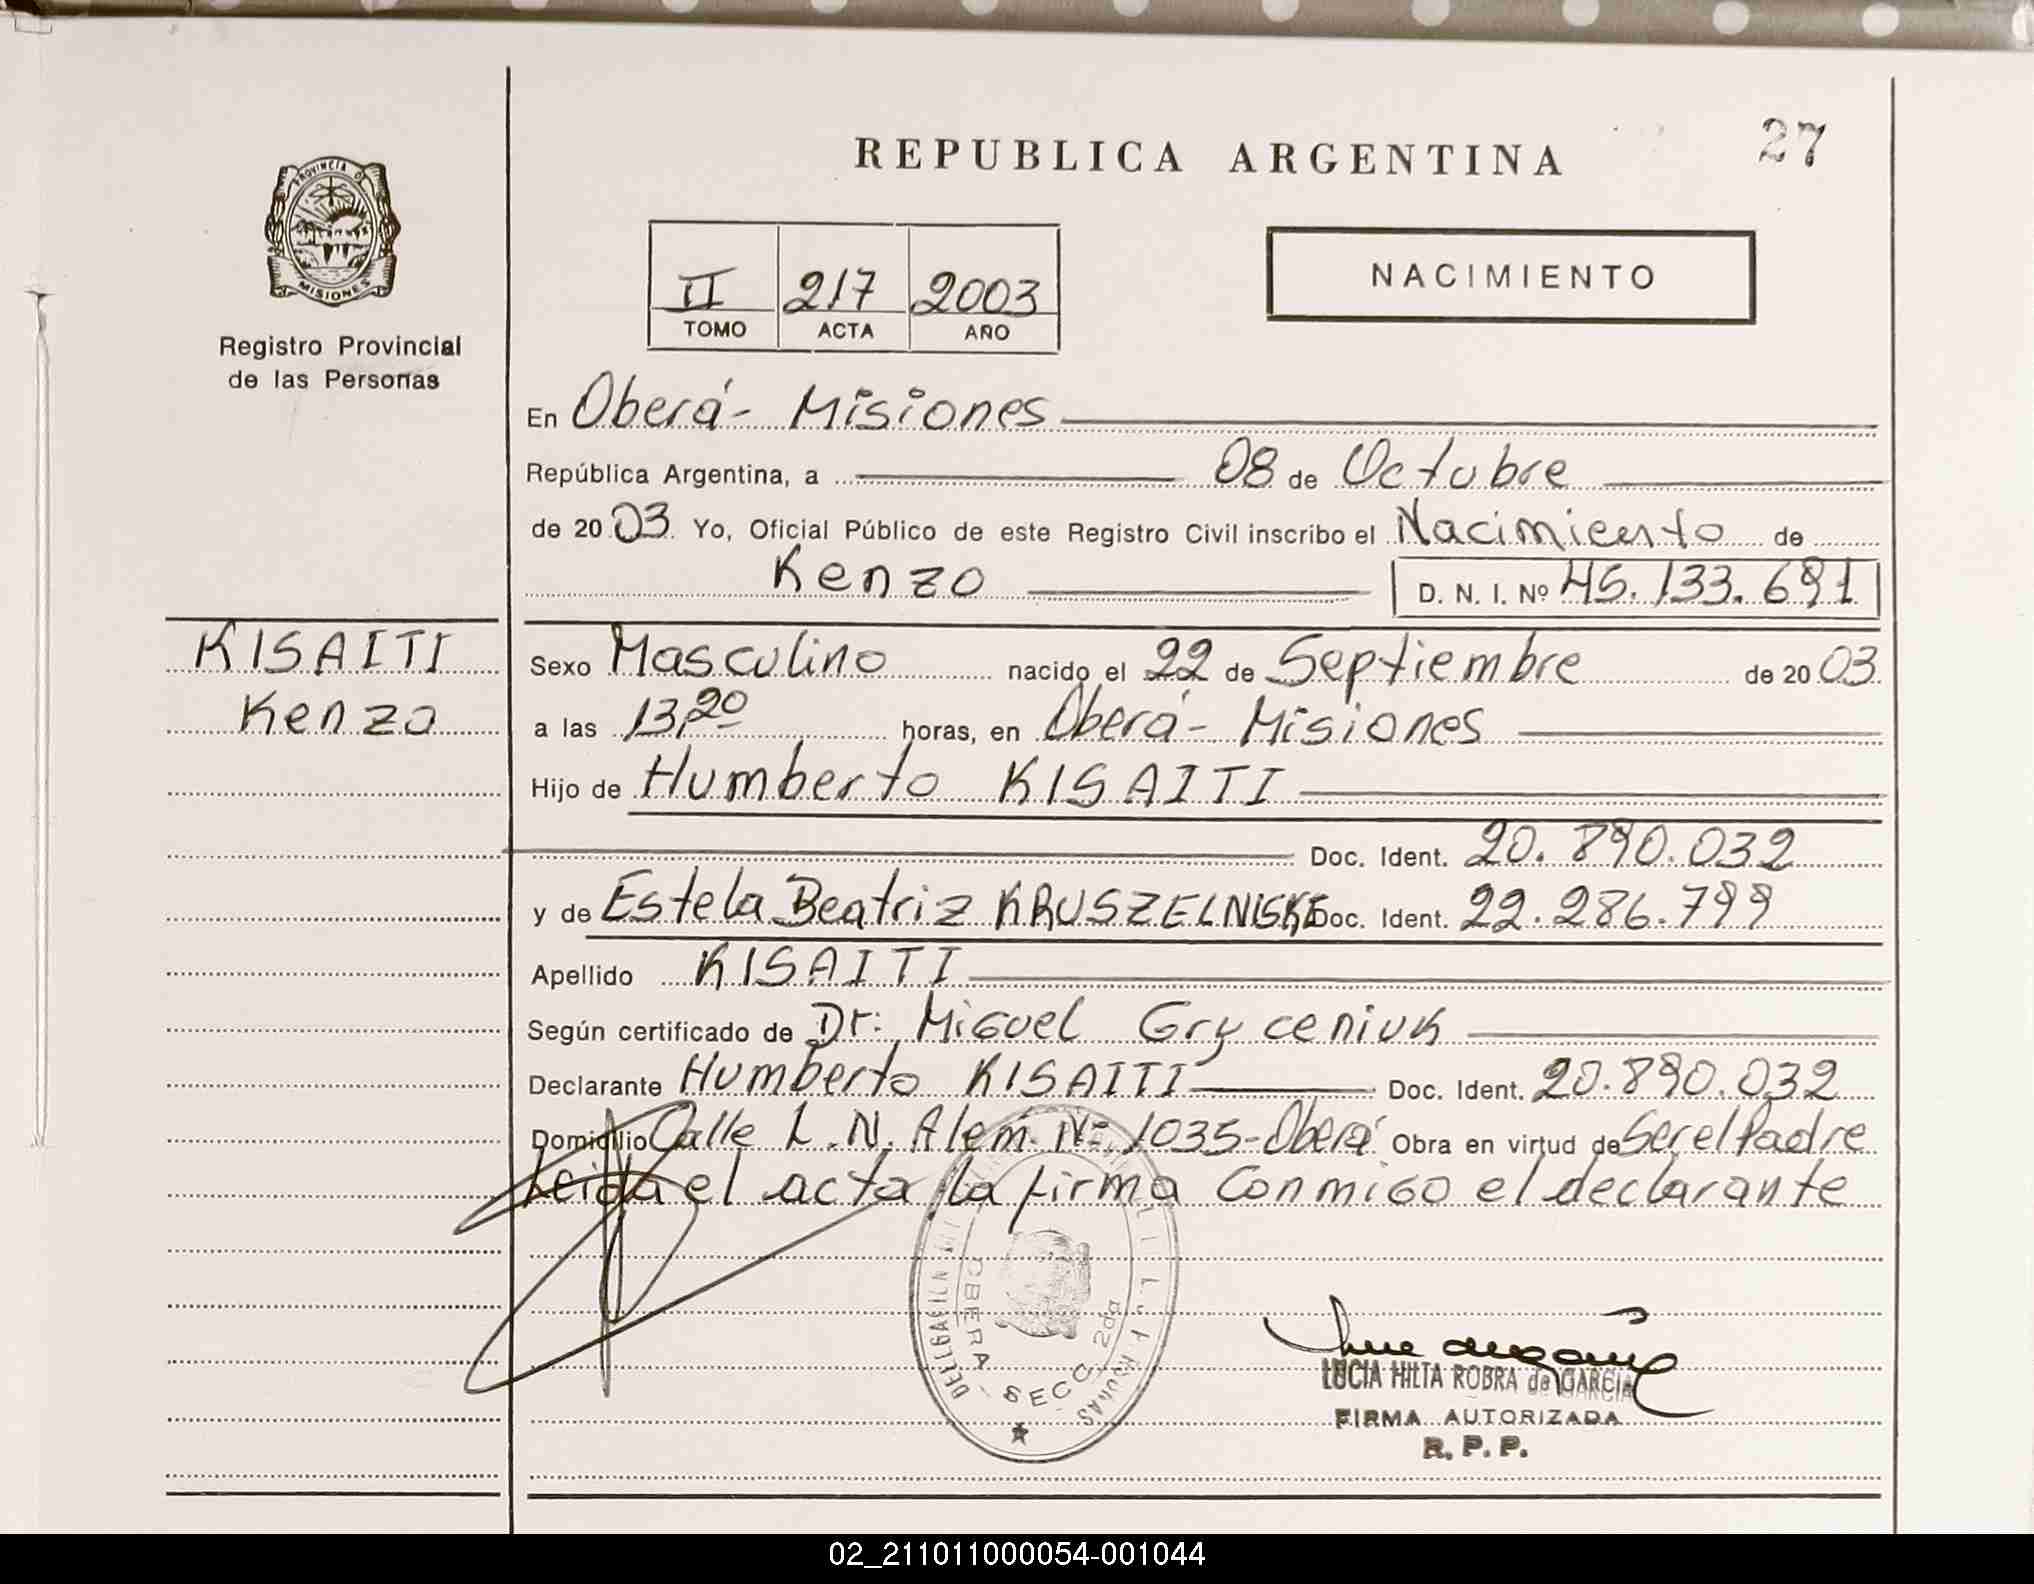 27
REPUBLICA ARGENTINA
PROVINCIA D
MISIONES
Registro Provincial
de las Personas
II 217 2003
TOMO ACTA AÑO
NACIMIENTO
En Oberá - Misiones
República Argentina, a 08 de Octubre
de 20 03. Yo, Oficial Público de este Registro Civil inscribo el Nacimiento de
Kenzo D. N. I. Nº 45.133.691
KISAITI
Kenzo
Sexo Masculino nacido el 22 de Septiembre de 20 03
a las 13,20 horas, en Oberá - Misiones
Hijo de Humberto KISAITI
Doc. Ident. 20.890.032
y de Estela Beatriz KRUSZELNISKE Doc. Ident. 22.286.799
Apellido KISAITI
Según certificado de Dr: Miguel Gryceniuk
Declarante Humberto KISAITI Doc. Ident. 20.890.032
Domicilio Calle L.N. Alem. Nº 1035-Oberá Obra en virtud de Ser el Padre
Leida el acta la firma conmigo el declarante
OBERA - SECC. 2da
LUCIA HILTA ROBRA de GARCIA
FIRMA AUTORIZADA
R. P. P.
02_211011000054-001044